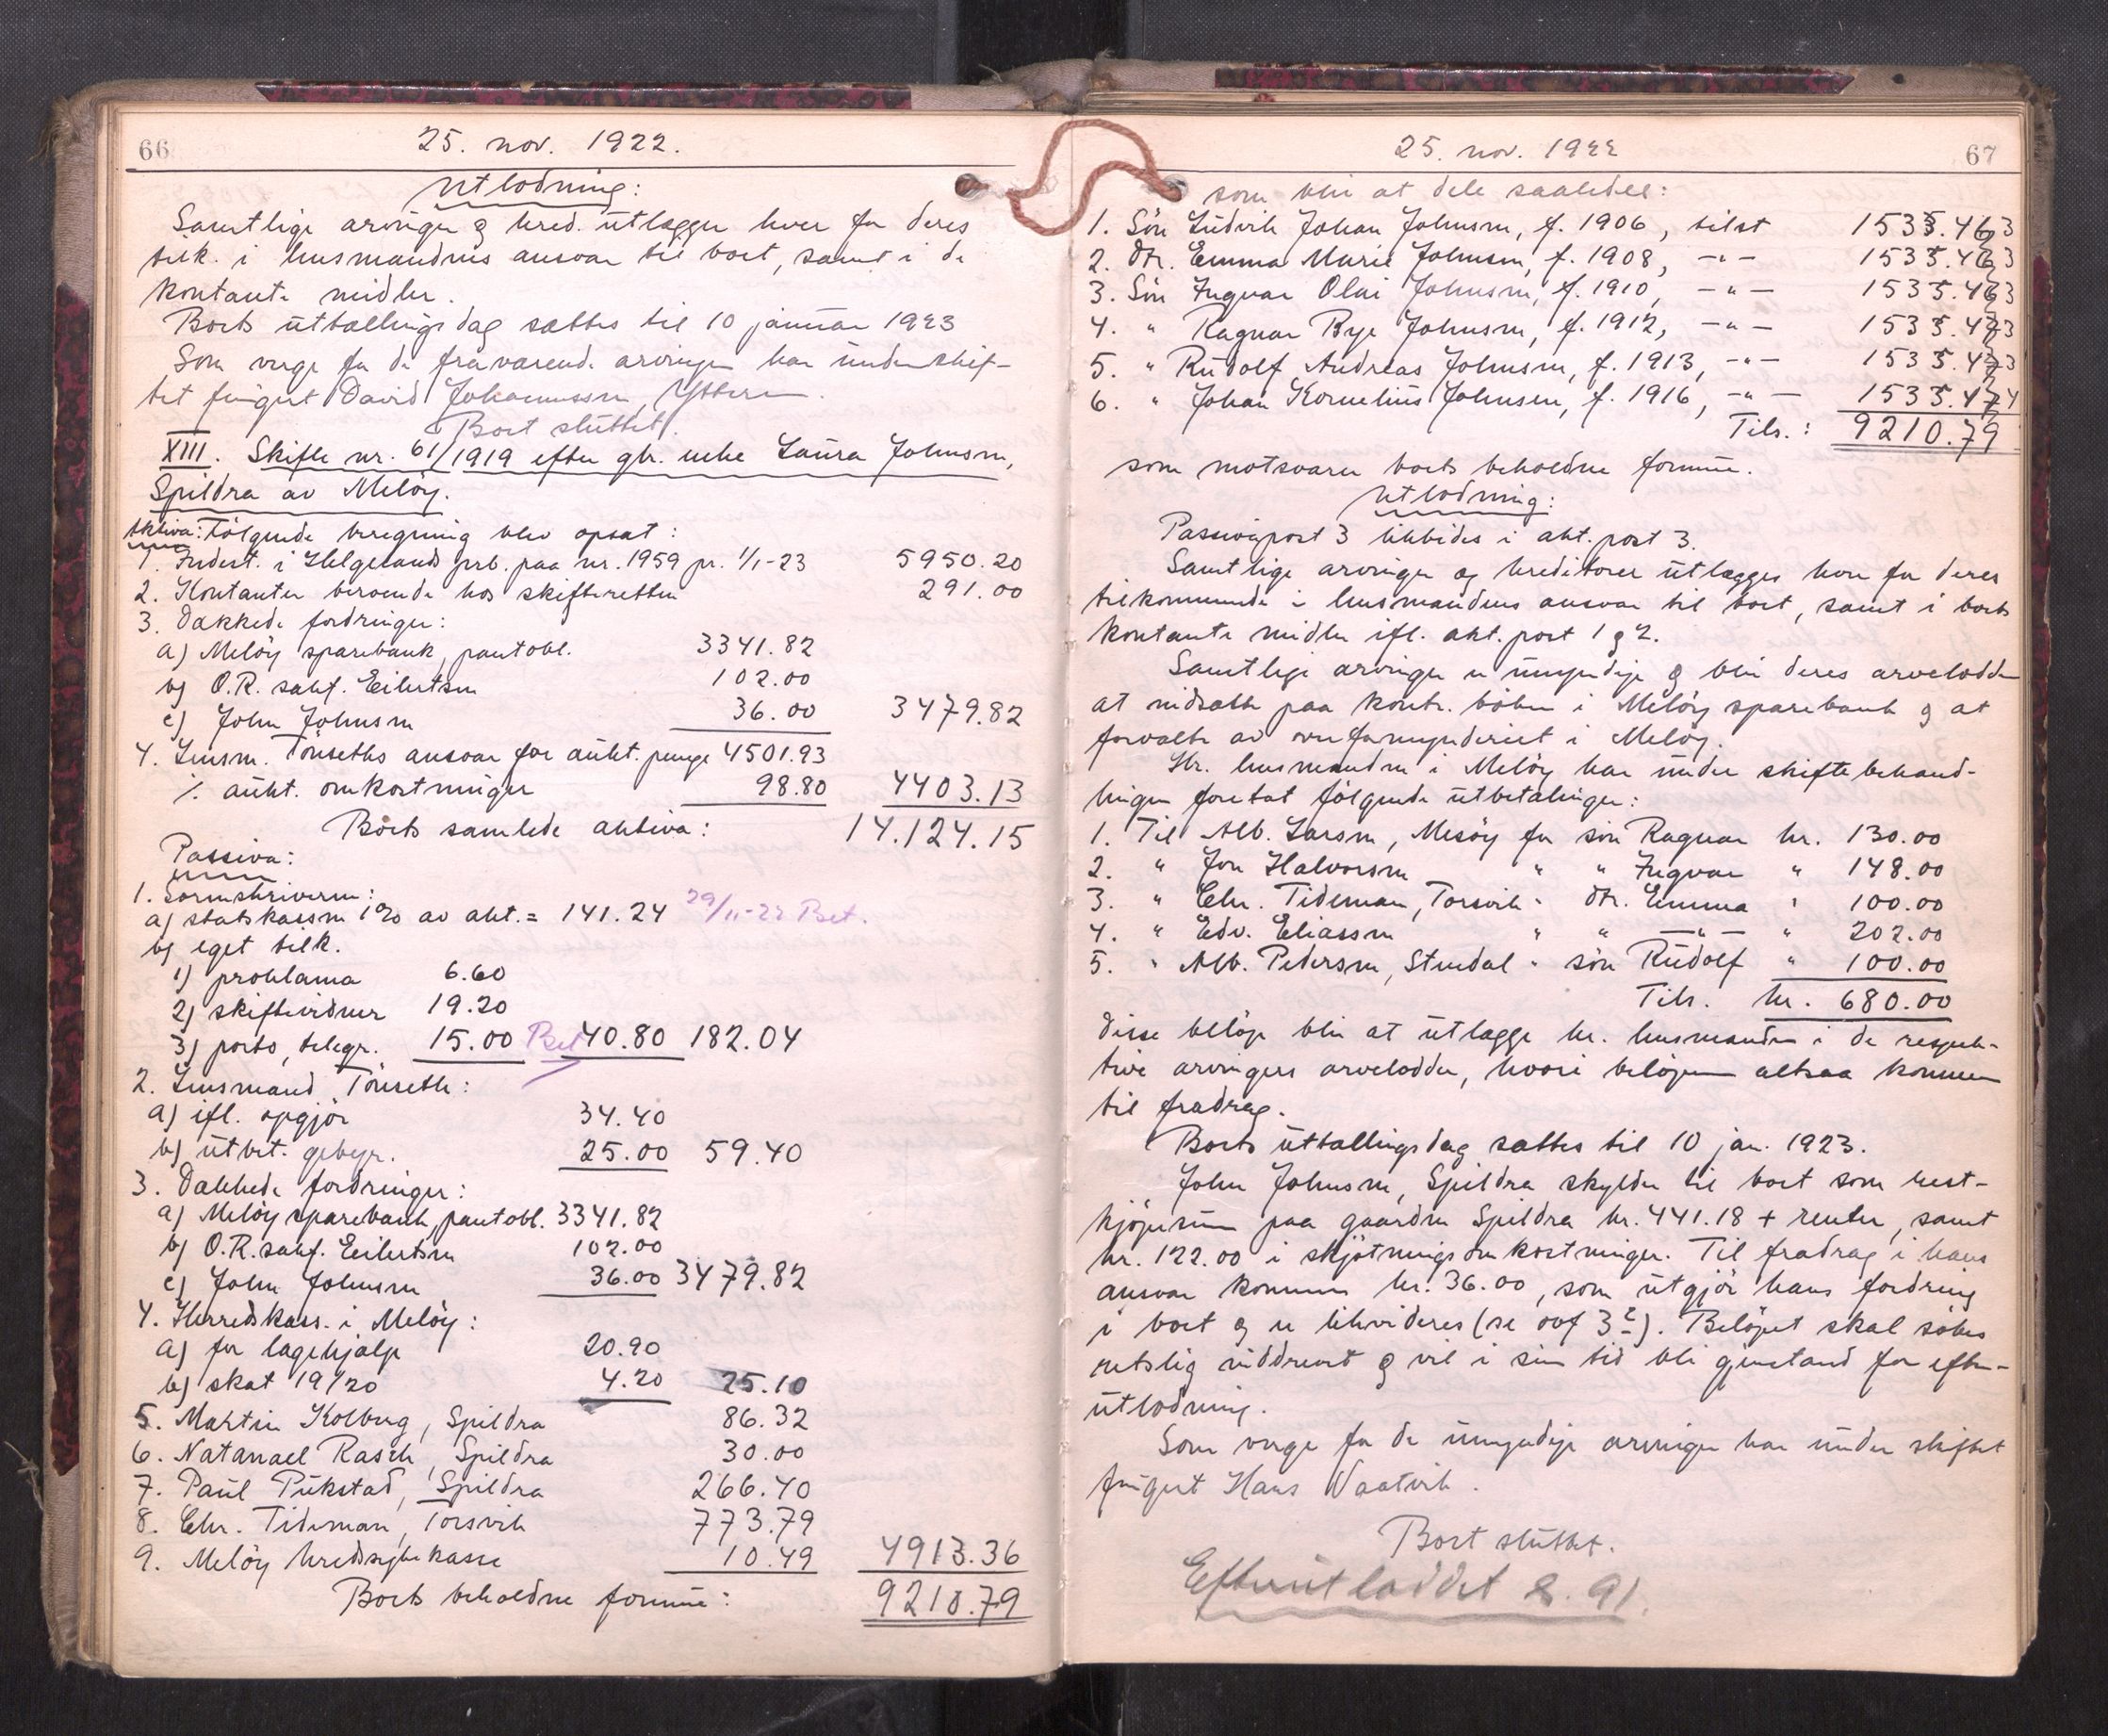 66
25. nov. 1922.
Utlodning:
Samtlige arvinger og kred. utlægges hver for deres
tilk. i lensmandens ansvar til boet, samt i de
kontante midler.
Boets uttællingsdag sættes til 10 januar 1923
Som verge for de fraværende arvinger har under skif-
tet fungert David Johannessen, Ytteren.
Boet sluttet.
XIII. Skifte nr. 61/1919 efter gbr. enke Laura Johnsen,
Spildra av Meløy.
Aktiva: Følgende beregning blev opsat:
1. Indest. i Helgelands prb. paa nr. 1959 pr. 1/1-23 5950.20
2. Kontanter beroende hos skifteretten 291.00
3. Dækkede fordringer:
a) Meløy sparebank, pantobl. 3341.82
b) O.R. sakf. Eilertsen 102.00
c) John Johnsen 36.00 3479.82
4. Lensm. Tönseths ansvar for aukt. penge 4501.93
÷ aukt. omkostninger 98.80 4403.13
Boets samlede aktiva: 14.124.15
Passiva:
1. Sorenskriveren:
a) statskassen 1% av akt. = 141.24 29/11-22 Bet.
b) eget tilk.
1) proklama 6.60
2) skiftevidner 19.20
3) porto, telegr. 15.00 Bet 40.80 182.04
2. Lensmand Tönseth:
a) ifl. opgjör 34.40
b) utbet. gebyr. 25.00 59.40
3. Dækkede fordringer:
a) Meløy sparebank, pantobl. 3341.82
b) O.R. sakf. Eilertsen 102.00
c) John Johnsen 36.00 3479.82
4. Herredskass. i Meløy:
a) for lægehjælp 20.90
b) skat 19/20 4.20 25.10
5. Martin Kolberg, Spildra 86.32
6. Natanael Rasch, Spildra 30.00
7. Paul Pukstad, Spildra 266.40
8. Chr. Tideman, Torsvik 773.79
9. Meløy kredssykekasse 10.49 4913.36
Boets beholdne formue: 9210.79
25. nov. 1922
67
som blir at dele saaledes:
1. Sön Ludvik Johan Johnsen, f. 1906, tilst 1535.13
2. Dtr. Emma Marie Johnsen, f. 1908, -"- 1535.13
3. Sön Ingvar Olai Johnsen, f. 1910, -"- 1535.13
4. " Ragnar Bye Johnsen, f. 1912, -"- 1535.13
5. " Rudolf Andreas Johnsen, f. 1913, -"- 1535.13
6. " Johan Kornelius Johnsen, f. 1916, -"- 1535.14
Tils.: 9210.79
som motsvarer boets beholdne formue.
Utlodning:
Passivapost 3 likvides i akt. post 3.
Samtlige arvinger og kreditorer utlægges hver for deres
tilkommende i lensmandens ansvar til boet, samt i boets
kontante midler ifl. akt. post 1 og 2.
Samtlige arvinger er umyndige og blir deres arvelodder
at nedsætte paa kontr. böker i Meløy sparebank og at
forvalte av overformynderiet i Meløy.
Hr. lensmanden i Meløy har under skiftebehand-
lingen foretat fölgende utbetalinger:
1. Til Alb. Larsen, Mesöy for sön Ragnar kr. 130.00
2. " Jon Halvorsen " " Ingvar " 148.00
3. " Chr. Tideman, Torsvik " dtr. Emma " 100.00
4. " Edv. Eliassen " " -"- " 202.00
5. " Alb. Pedersen, Stendal " sön Rudolf " 100.00
Tils. kr. 680.00
Disse belöp blir at utlægge hr. lensmanden i de respek-
tive arvingers arvelodder, hvori belöpene altsaa kommer
til fradrag.
Boets uttællingsdag sættes til 10 jan. 1923.
John Johnsen, Spildra skylder til boet som rest-
kjöpesum paa gaarden Spildra kr. 441.18 + renter, samt
kr. 122.00 i skjötningsomkostninger. Til fradrag i hans
ansvar kommer kr. 36.00, som utgjör hans fordring
i boet og er likvideres (se ovf 3c). Belöpet skal sökes
retslig inddrevet og vil i sin tid bli gjenstand for efter-
utlodning.
Som verge for de umyndige arvinger har under skiftet
fungert Hans Vaatvik.
Boet sluttet.
Efterutloddet s. 91.